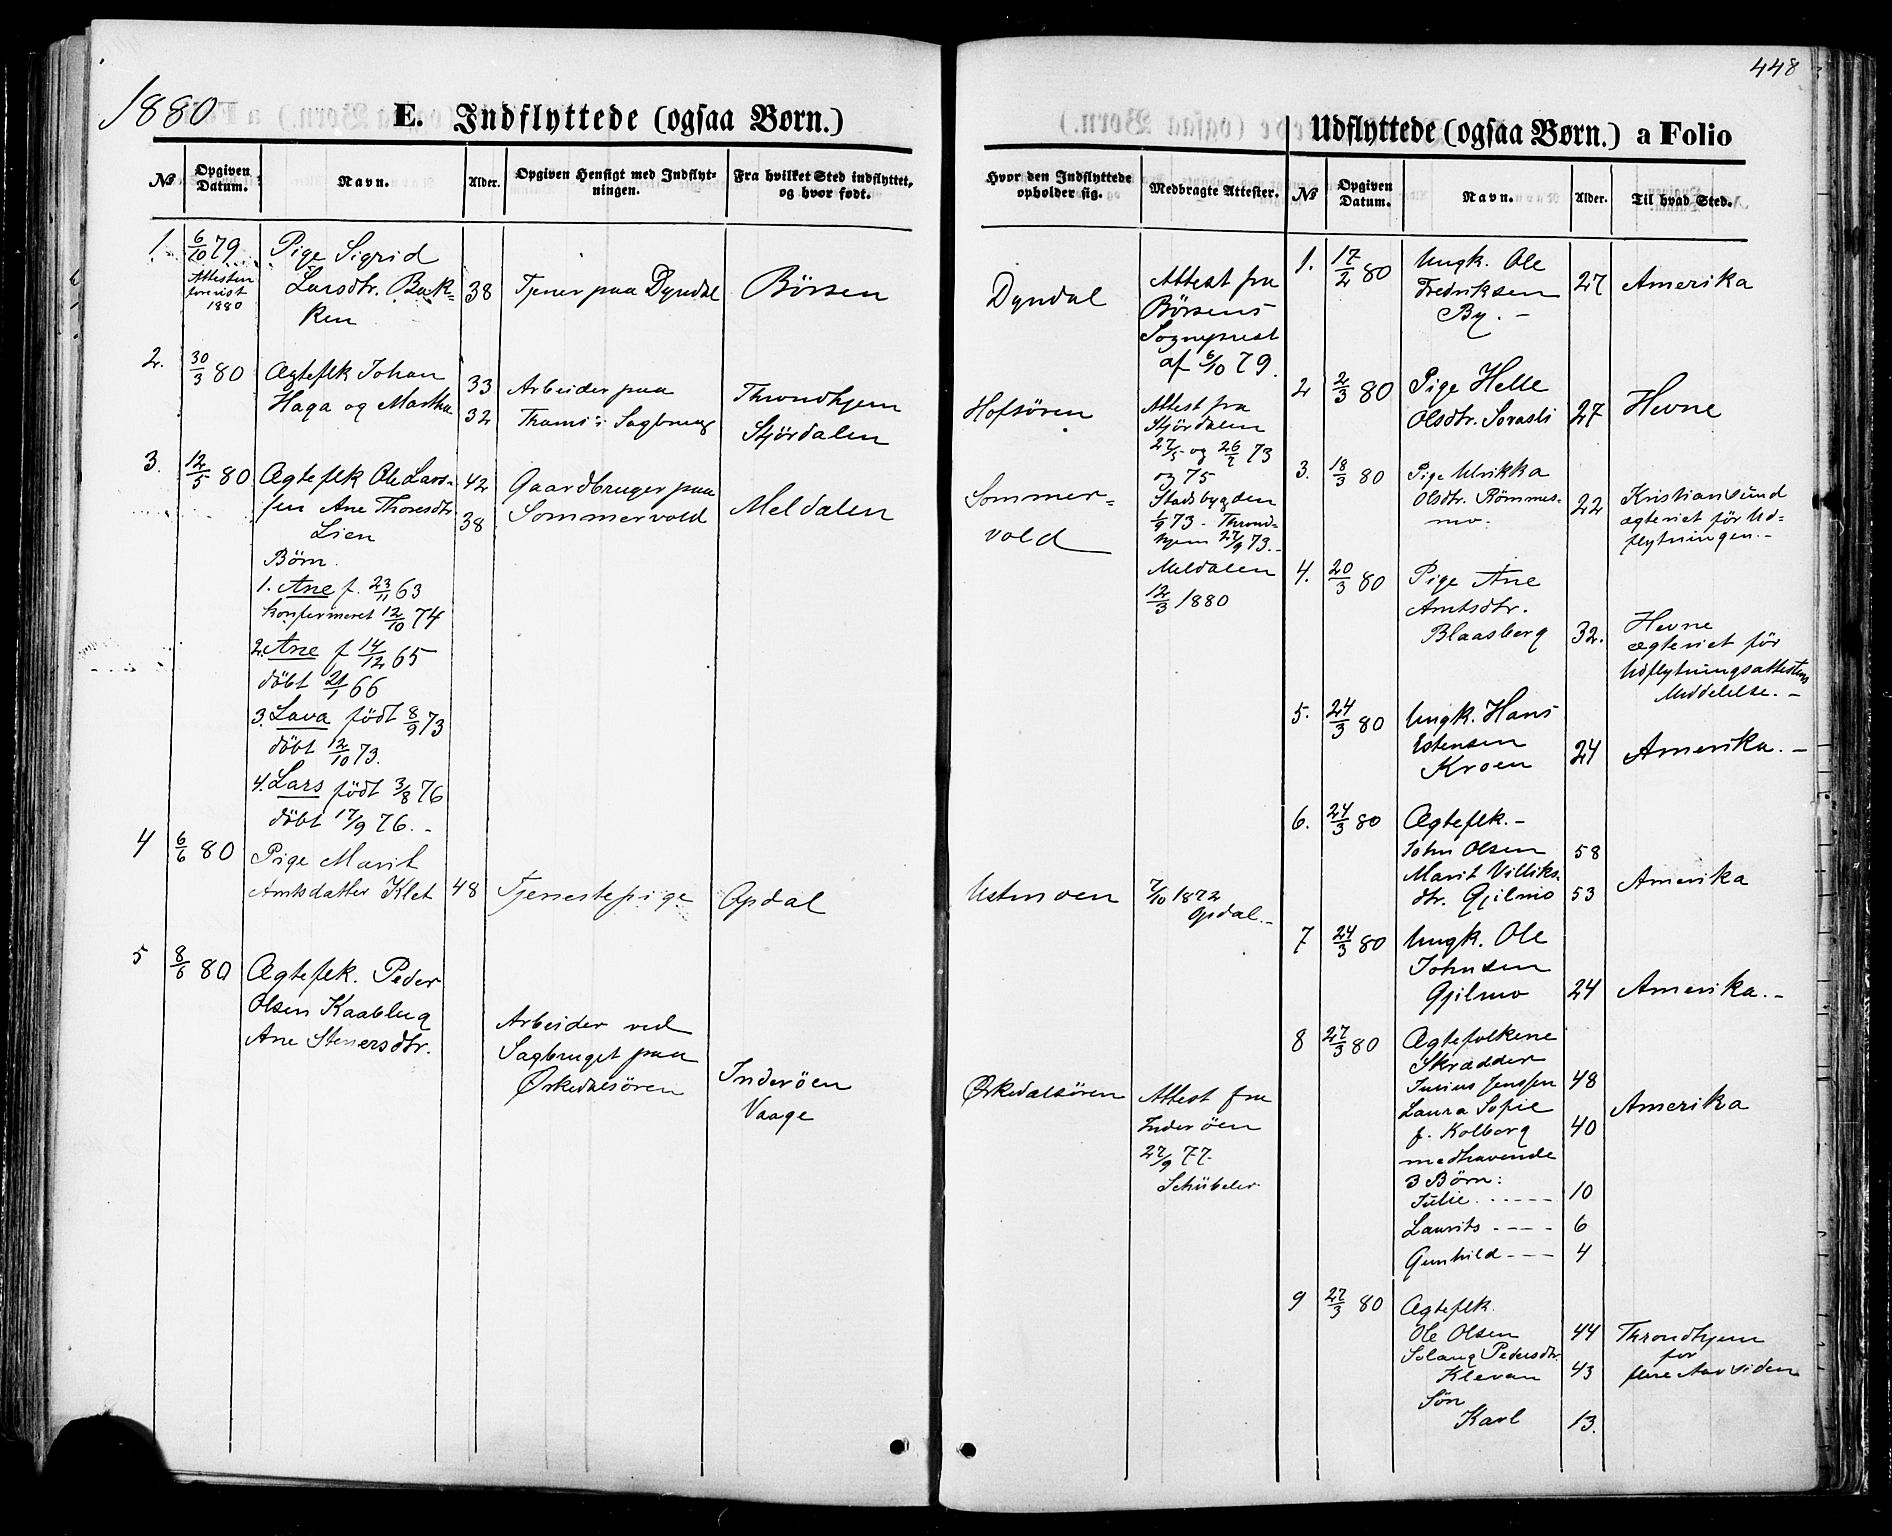 1880
E. Indflyttede (ogsaa Børn.)
№
Opgiven Datum.
Navn.
Alder.
Opgiven Hensigt med Indflyt-
ningen.
Fra hvilket Sted indflyttet,
og hvor født.
Hvor den Indflyttede
opholder sig.
Medbragte Attester.
1. 6/10 79
Attesten
forevist
1880
Pige Sigrid
Larsdtr. Bak-
ken
38
Tjener paa Dyndal
Börsen
Dyndal
Attest fra
Börsens
Sogneprest
af 6/10 79.
2. 30/3 80
Ægteflk Johan
Haga og Martha
33
32
Arbeider paa
Thams's Sagbrug
Throndhjem
Stjördalen
Hofsören
Attest fra
Stjördalen
27/5 og 26/7 73
og 75
3. 12/5 80
Ægteflk Ole Lars-
sen Ane Thoresdtr.
Lien
42
38
Gaardbruger paa
Sommervold
Meldalen
Sommer-
vold
Stadsbygden
1/9 73 - Thrond-
hjem 27/9 73.-
Meldalen
12/3 1880
Börn.
1. Ane f. 23/11 63
konfirmeret 12/10 74
2. Ane f 14/12 65
döbt 21/1 66
3. Lava födt 8/9 73
döbt 12/10 73.
4. Lars födt 3/8 76
döbt 17/9 76.-
4 6/6 80
Pige Marit
Amtsdatter Klet
48
Tjenestepige
Opdal
Ustmoen
7/10 1872
Opdal.-
5 8/6 80
Ægteflk. Peder
Olsen Kaablug
Ane Stenersdtr.
Arbeider ved
Sagbruget paa
Ørkedalsören
Inderöen
Vaage
Ørkedalsören
Attest fra
Inderöen
27/9 77.
Schübeler
448
Udflyttede (ogsaa Børn.) a Folio
№
Opgiven
Datum.
Navn.
Alder.
Til hvad Sted.
1. 17/2 80
Ungk. Ole
Fredriksen
By.-
27
Amerika
2 2/3 80
Pige Helle
Olsdtr. Sorasli
27
Hevne
3. 18/3 80
Pige Ulrikka
Olsdtr. Römmes-
mo.
22
Kristiansund
ægteviet för Ud-
flytningen.-
4. 20/3 80
Pige Ane
Amtsdtr.
Blaasberg
32.
Hevne
ægteviet för
Udflytningsattestens
Meddelelse.-
5. 24/3 80
Ungk. Hans
Estensen
Kroen
24
Amerika.-
6. 24/3 80
Ægteflk.-
John Olsen 58
Marit Villiks-
dtr. Gjilmo 53
Amerika
7 24/3 80
Ungk. Ole
Johnsen
Gjilmo
24
Amerika.-
8 27/3 80
Ægtefolkene
Skrædder
Junius Jenssen 48
Laura Sofie
f. Kolborg 40
Amerika
medhavende
3 Börn:
Julie. ----- 10
Laurits ---- 6
Gunhild --- 4
9 27/3 80
Ægteflk.
Ole Olsen 44
Solaug Pedersdtr.
Klevan 43
Sön
Karl 13.
Throndhjem
for
flere Aar siden